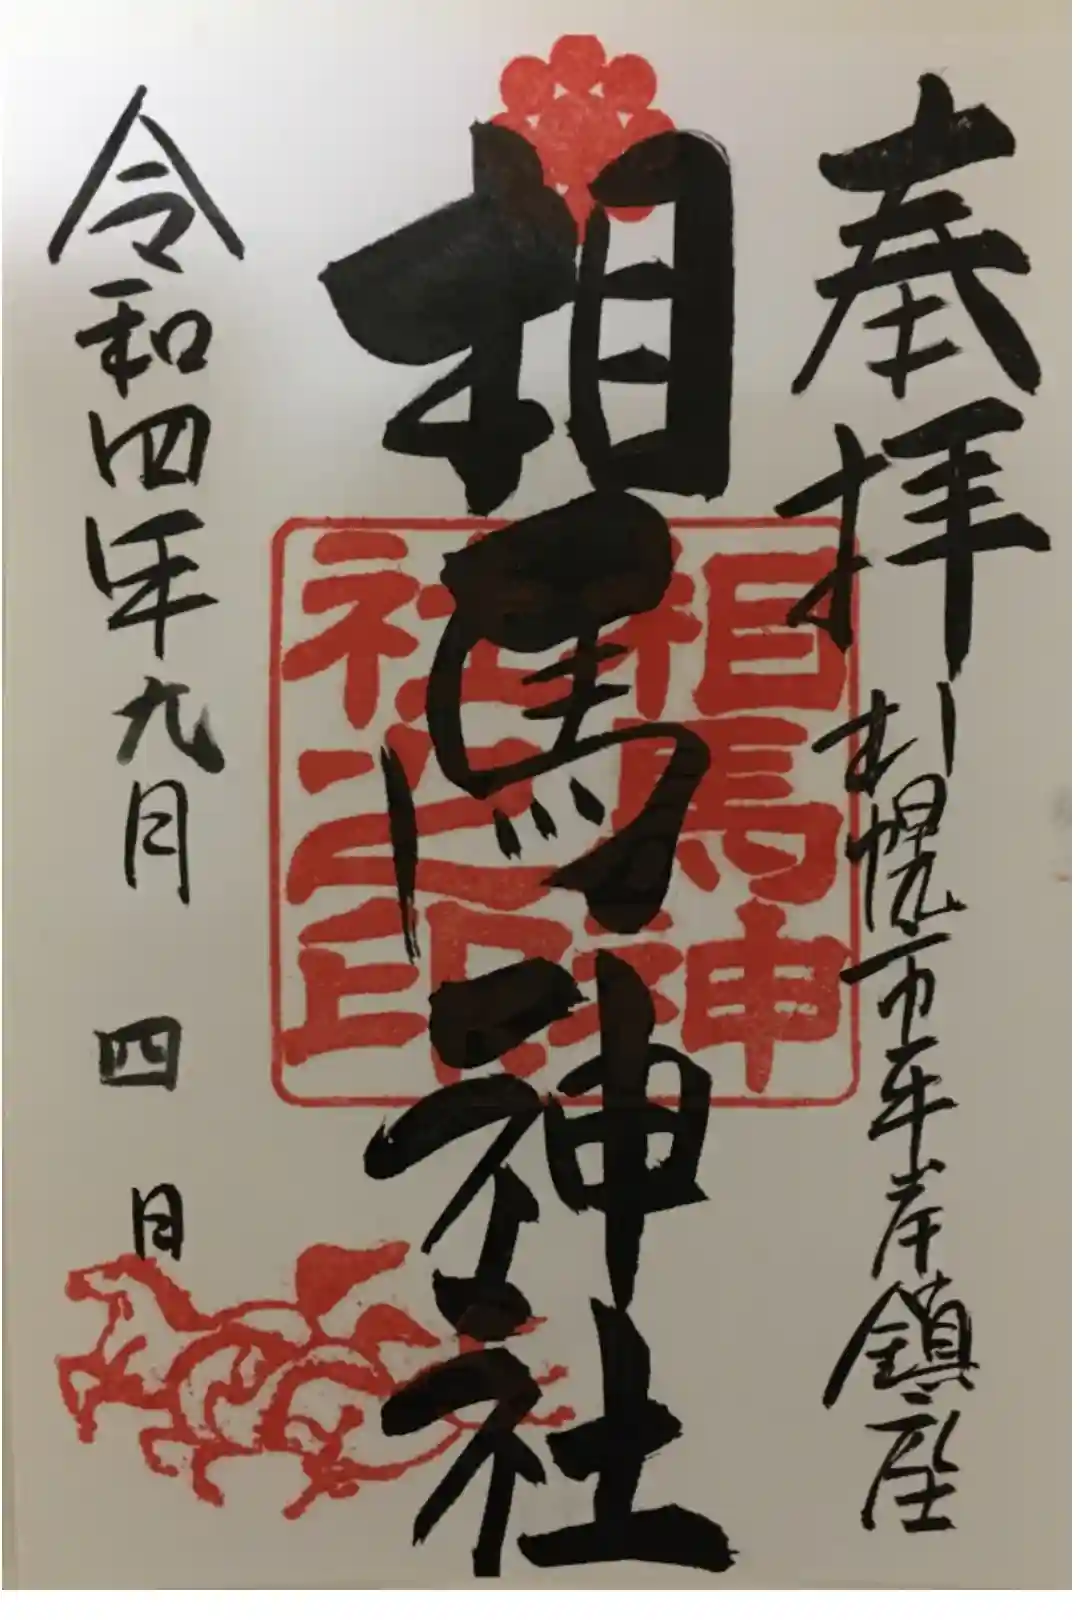 奉拝
札幌市平岸鎮座
相馬神社
相馬神
社之印
令和四年九月四日